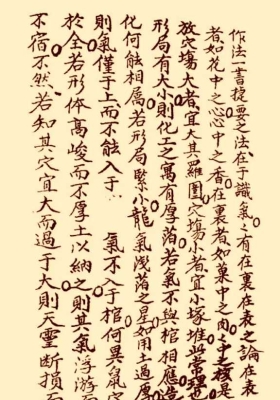 作法一書捷要之法在于識氣之有在裏在表之論在表
者如花中之心心中之香在裏者如菓中之肉
放穴塲大者宜大其羅圍穴塲小者宜小塚堆此常理也
形局有大小則化工之寓有厚薄若氣不與棺相應
化何能相属若形局緊小龍氣淺薄之星如用土過厚
則氣僅于上而不能入于 氣不入于棺何異
於全若形体高峻而不厚土以納之則其氣浮游而
不宿不然若知其穴宜大而過于大則天靈断損